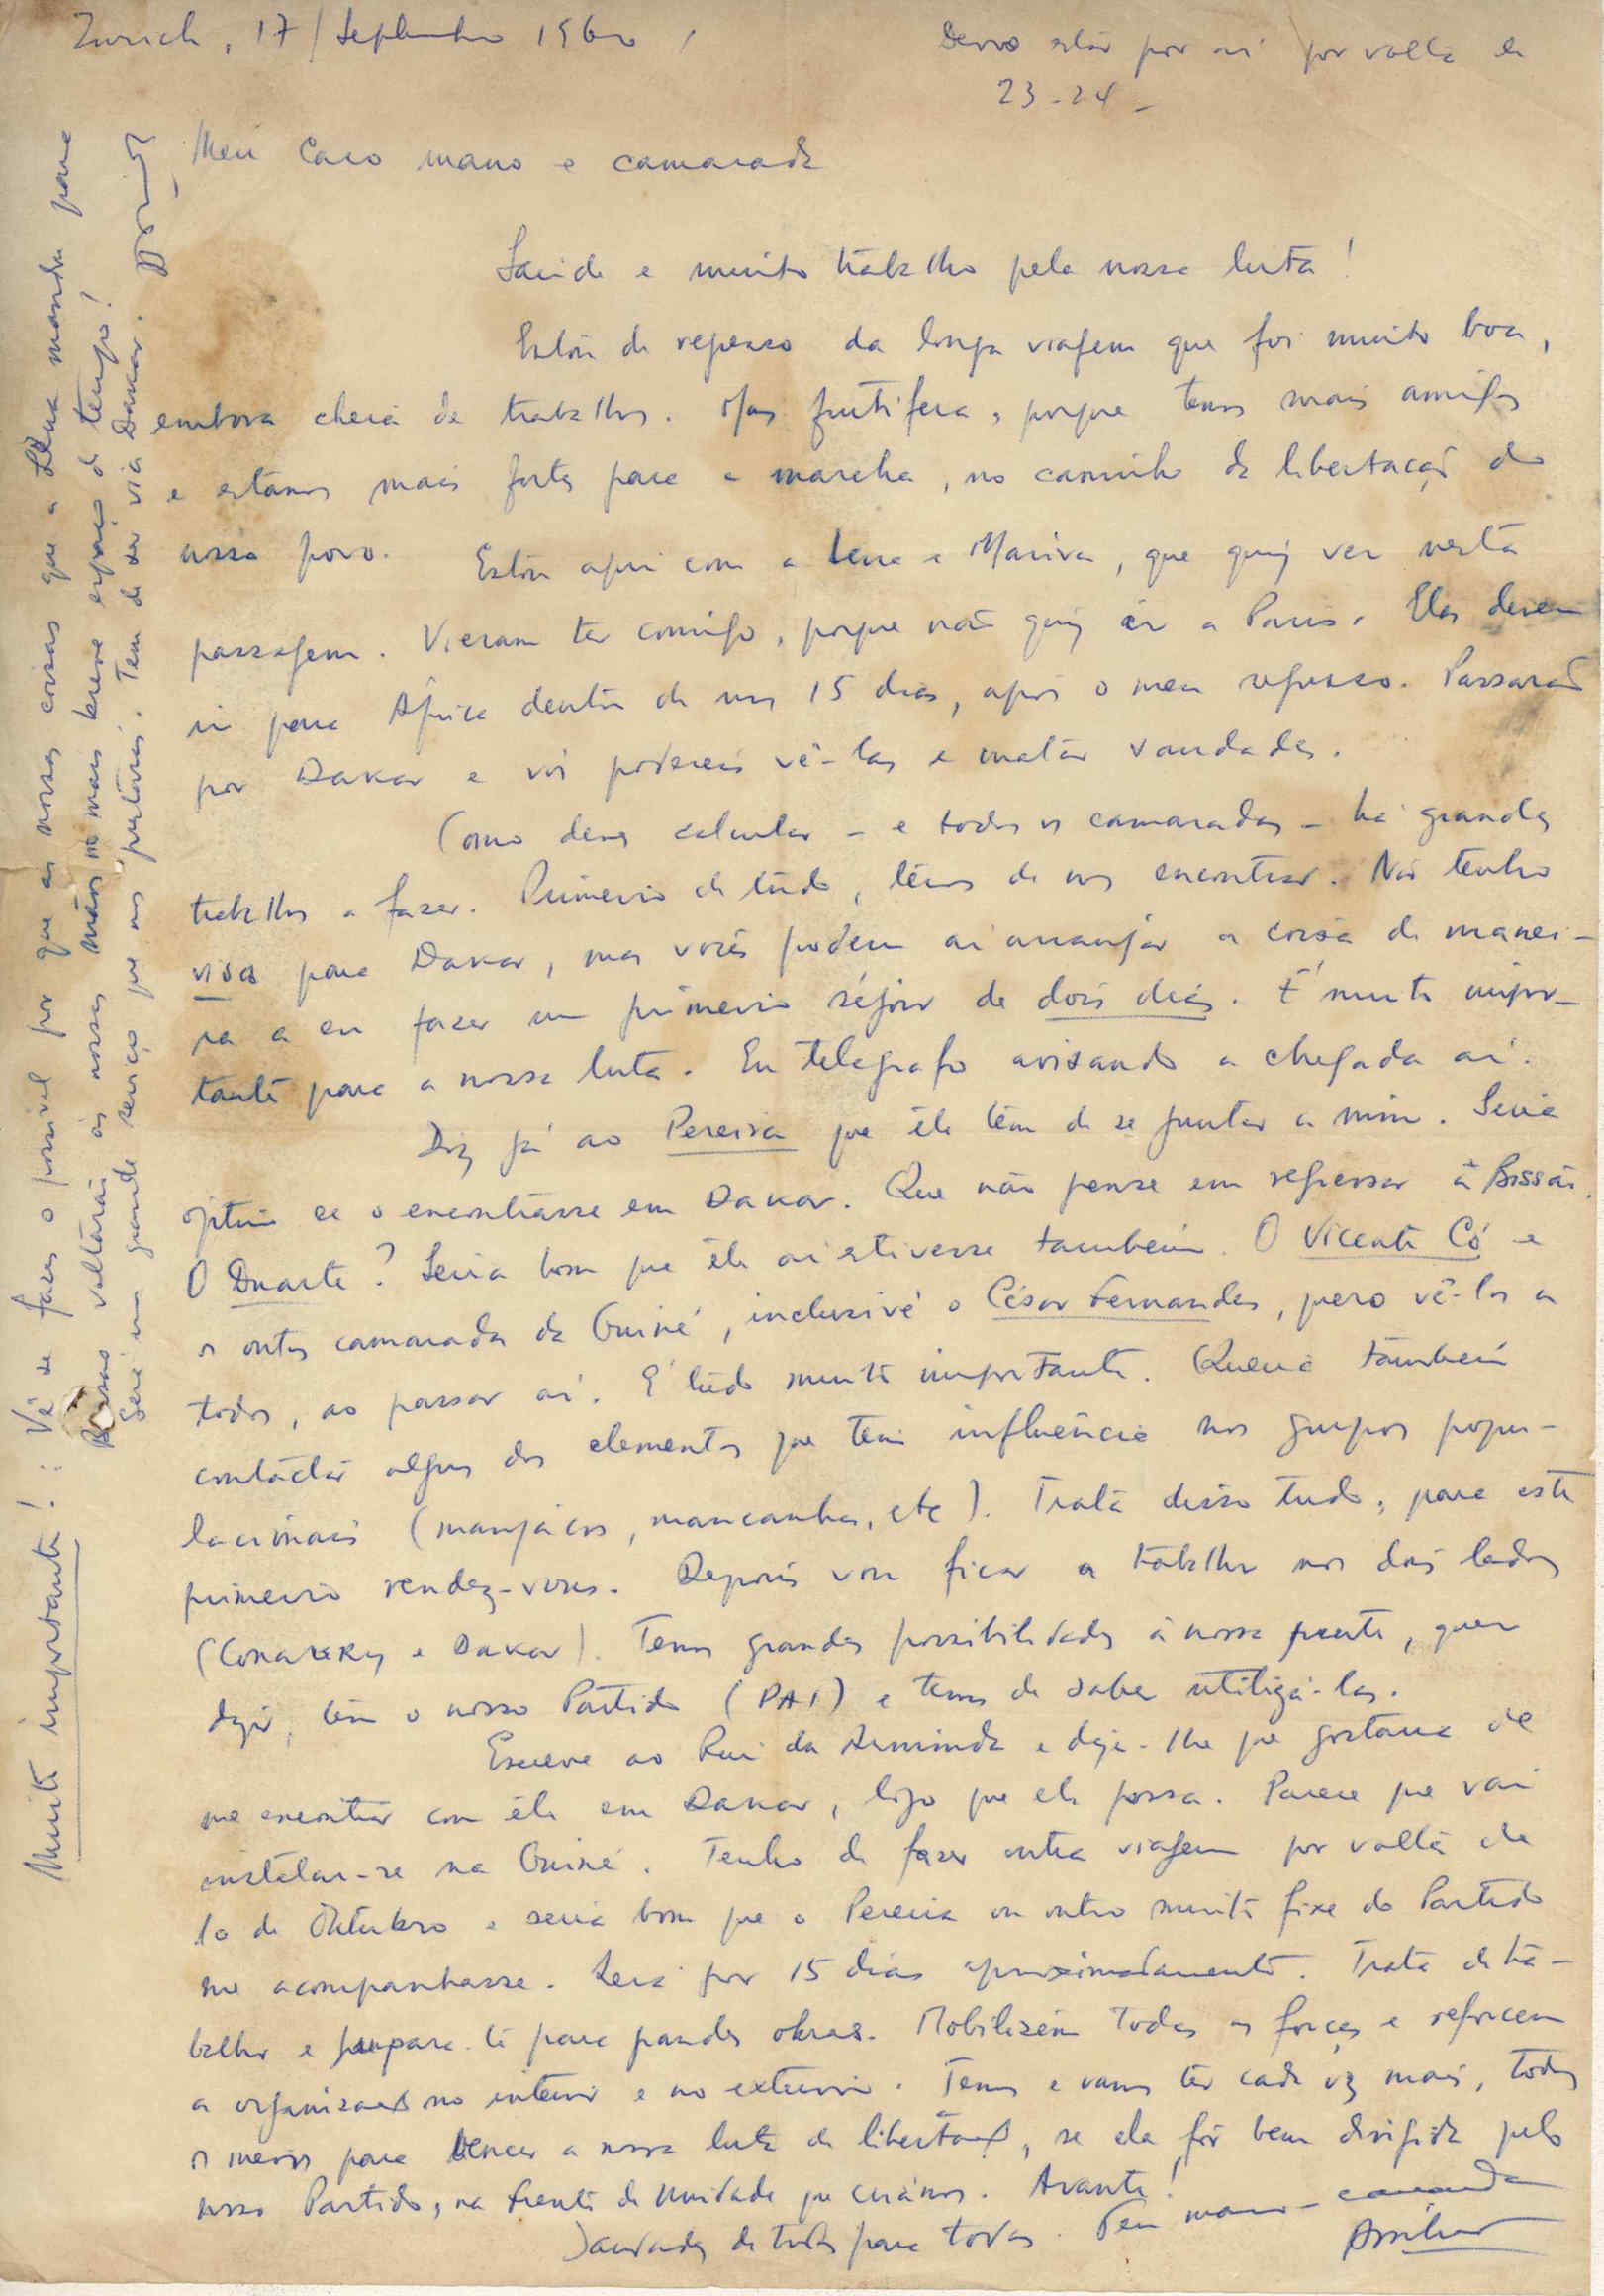 Zurich, 17/Septembro 1960,
Devo estar por aí por volta de
23-24-
Meu Caro mano e camarada
Saúde e muito trabalho pela nossa luta!
Estou de regresso da longa viagem que foi muito boa,
embora cheia de trabalhos. Mas frutífera, porque temos mais amigos
e estamos mais fortes para a marcha, no caminho da libertação do
nosso povo. Estou aqui com a Lena e Mariva, que quiz ver nesta
passagem. Vieram ter comigo, porque não quiz ir a Paris. Elas devem
ir para África dentro de uns 15 dias, após o meu regresso. Passarão
por Dakar e vós podereis vê-las e matar saudades.
Como deves calcular - e todos os camaradas - há grandes
trabalhos a fazer. Primeiro de tudo, temos de nos encontrar. Não tenho
visa para Dakar, mas vocês podem aí arranjar a coisa de manei-
ra a eu fazer um primeiro séjour de dois dias. É muito impor-
tante para a nossa luta. Eu telegrafo avisando a chegada aí.
Diz já ao Pereira que êle tem de se juntar a mim. Seria
óptimo se o encontrasse em Dakar. Que não pense em regressar à Bissau.
O Duarte? Seria bom que êle aí estivesse também. O Vicente Có e
os outros camaradas da Guiné, inclusivé o César Fernandes, quero vê-los a
todos, ao passar aí. É tudo muito importante. Queria também
contactar alguns dos elementos que têm influência nos grupos popu-
lacionais (manjacos, mancanhas, etc). Trata disso tudo, para este
primeiro rendez-vous. Depois vou ficar a trabalhar nos dois lados
(Conakry e Dakar). Temos grandes possibilidades à nossa frente, quer
dizer, tem o nosso Partido (PAI) e temos de saber utilizá-las.
Escreve ao Rui da Arminda e diz-lhe que gostava de
me encontrar com êle em Dakar, logo que ele possa. Parece que vai
instalar-se na Guiné. Tenho de fazer outra viagem por volta de
10 de Outubro e seria bom que o Pereira ou outro muito fixe do Partido
me acompanhasse. Será por 15 dias aproximadamente. Trata de tra-
balhar e prepara-te para grandes obras. Mobilizem todas as forças e reforcem
a organização no interior e no exterior. Temos e vamos ter cada vez mais, todos
os meios para vencer a nossa luta de libertação, se ela fôr bem dirigida pelo
nosso Partido, na frente de unidade que criámos. Avante!
Saudades de todos para todos. Teu mano-camarada
Amílcar
Muito importante!: Vê se fazes o possível por que as nossas coisas que a Lena mandou para
Bissau voltarão às nossas mãos no mais breve espaço de tempo!
Será um grande serviço que nos prestarás. Tem de ser via Dakar.